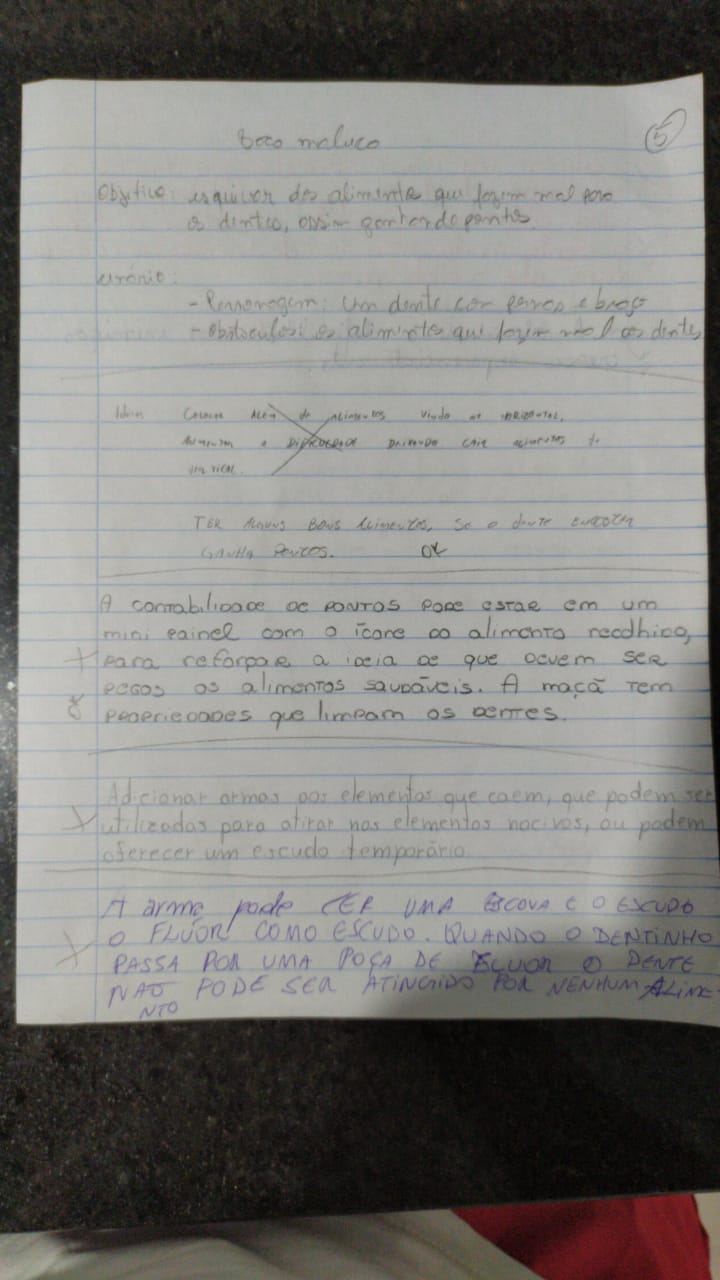 Beco maluco
5
Objetivo: esquivar dos alimentos que fazem mal para
os dentes, assim ganhando pontos.
Cenário:
- Personagem: Um dente com pernas e braço
- Obstáculos: os alimentos que fazem mal aos dentes,
Ideia Colocar Além de Alimentos vindo na HORIZONTAL,
Aumentar a DIFICULDADE DEIXANDO CAIR ALIMENTOS da
VERTICAL.
TER ALGUNS BONS ALIMENTOS, SE O dente ENCOSTA
GANHA PONTOS. OK
A CONTABILIDADE DE PONTOS PODE ESTAR EM UM
mini PAINEL COM O ÍCONE DO ALIMENTO RECOLHIDO,
PARA REFORÇAR A IDEIA DE QUE DEVEM SER
PEGOS OS ALIMENTOS SAUDÁVEIS. A MAÇÃ TEM
PROPRIEDADES QUE LIMPAM OS DENTES.
Adicionar armas aos elementos que caem, que podem ser
utilizadas para atirar nos elementos nocivos, ou podem
oferecer um escudo temporário
A arma pode SER UMA ESCOVA E O ESCUDO
O FLÚOR COMO ESCUDO. QUANDO O DENTINHO
PASSA POR UMA POÇA DE FLUOR O DENTE
NÃO PODE SER ATINGIDO POR NENHUM ALIME-
NTO